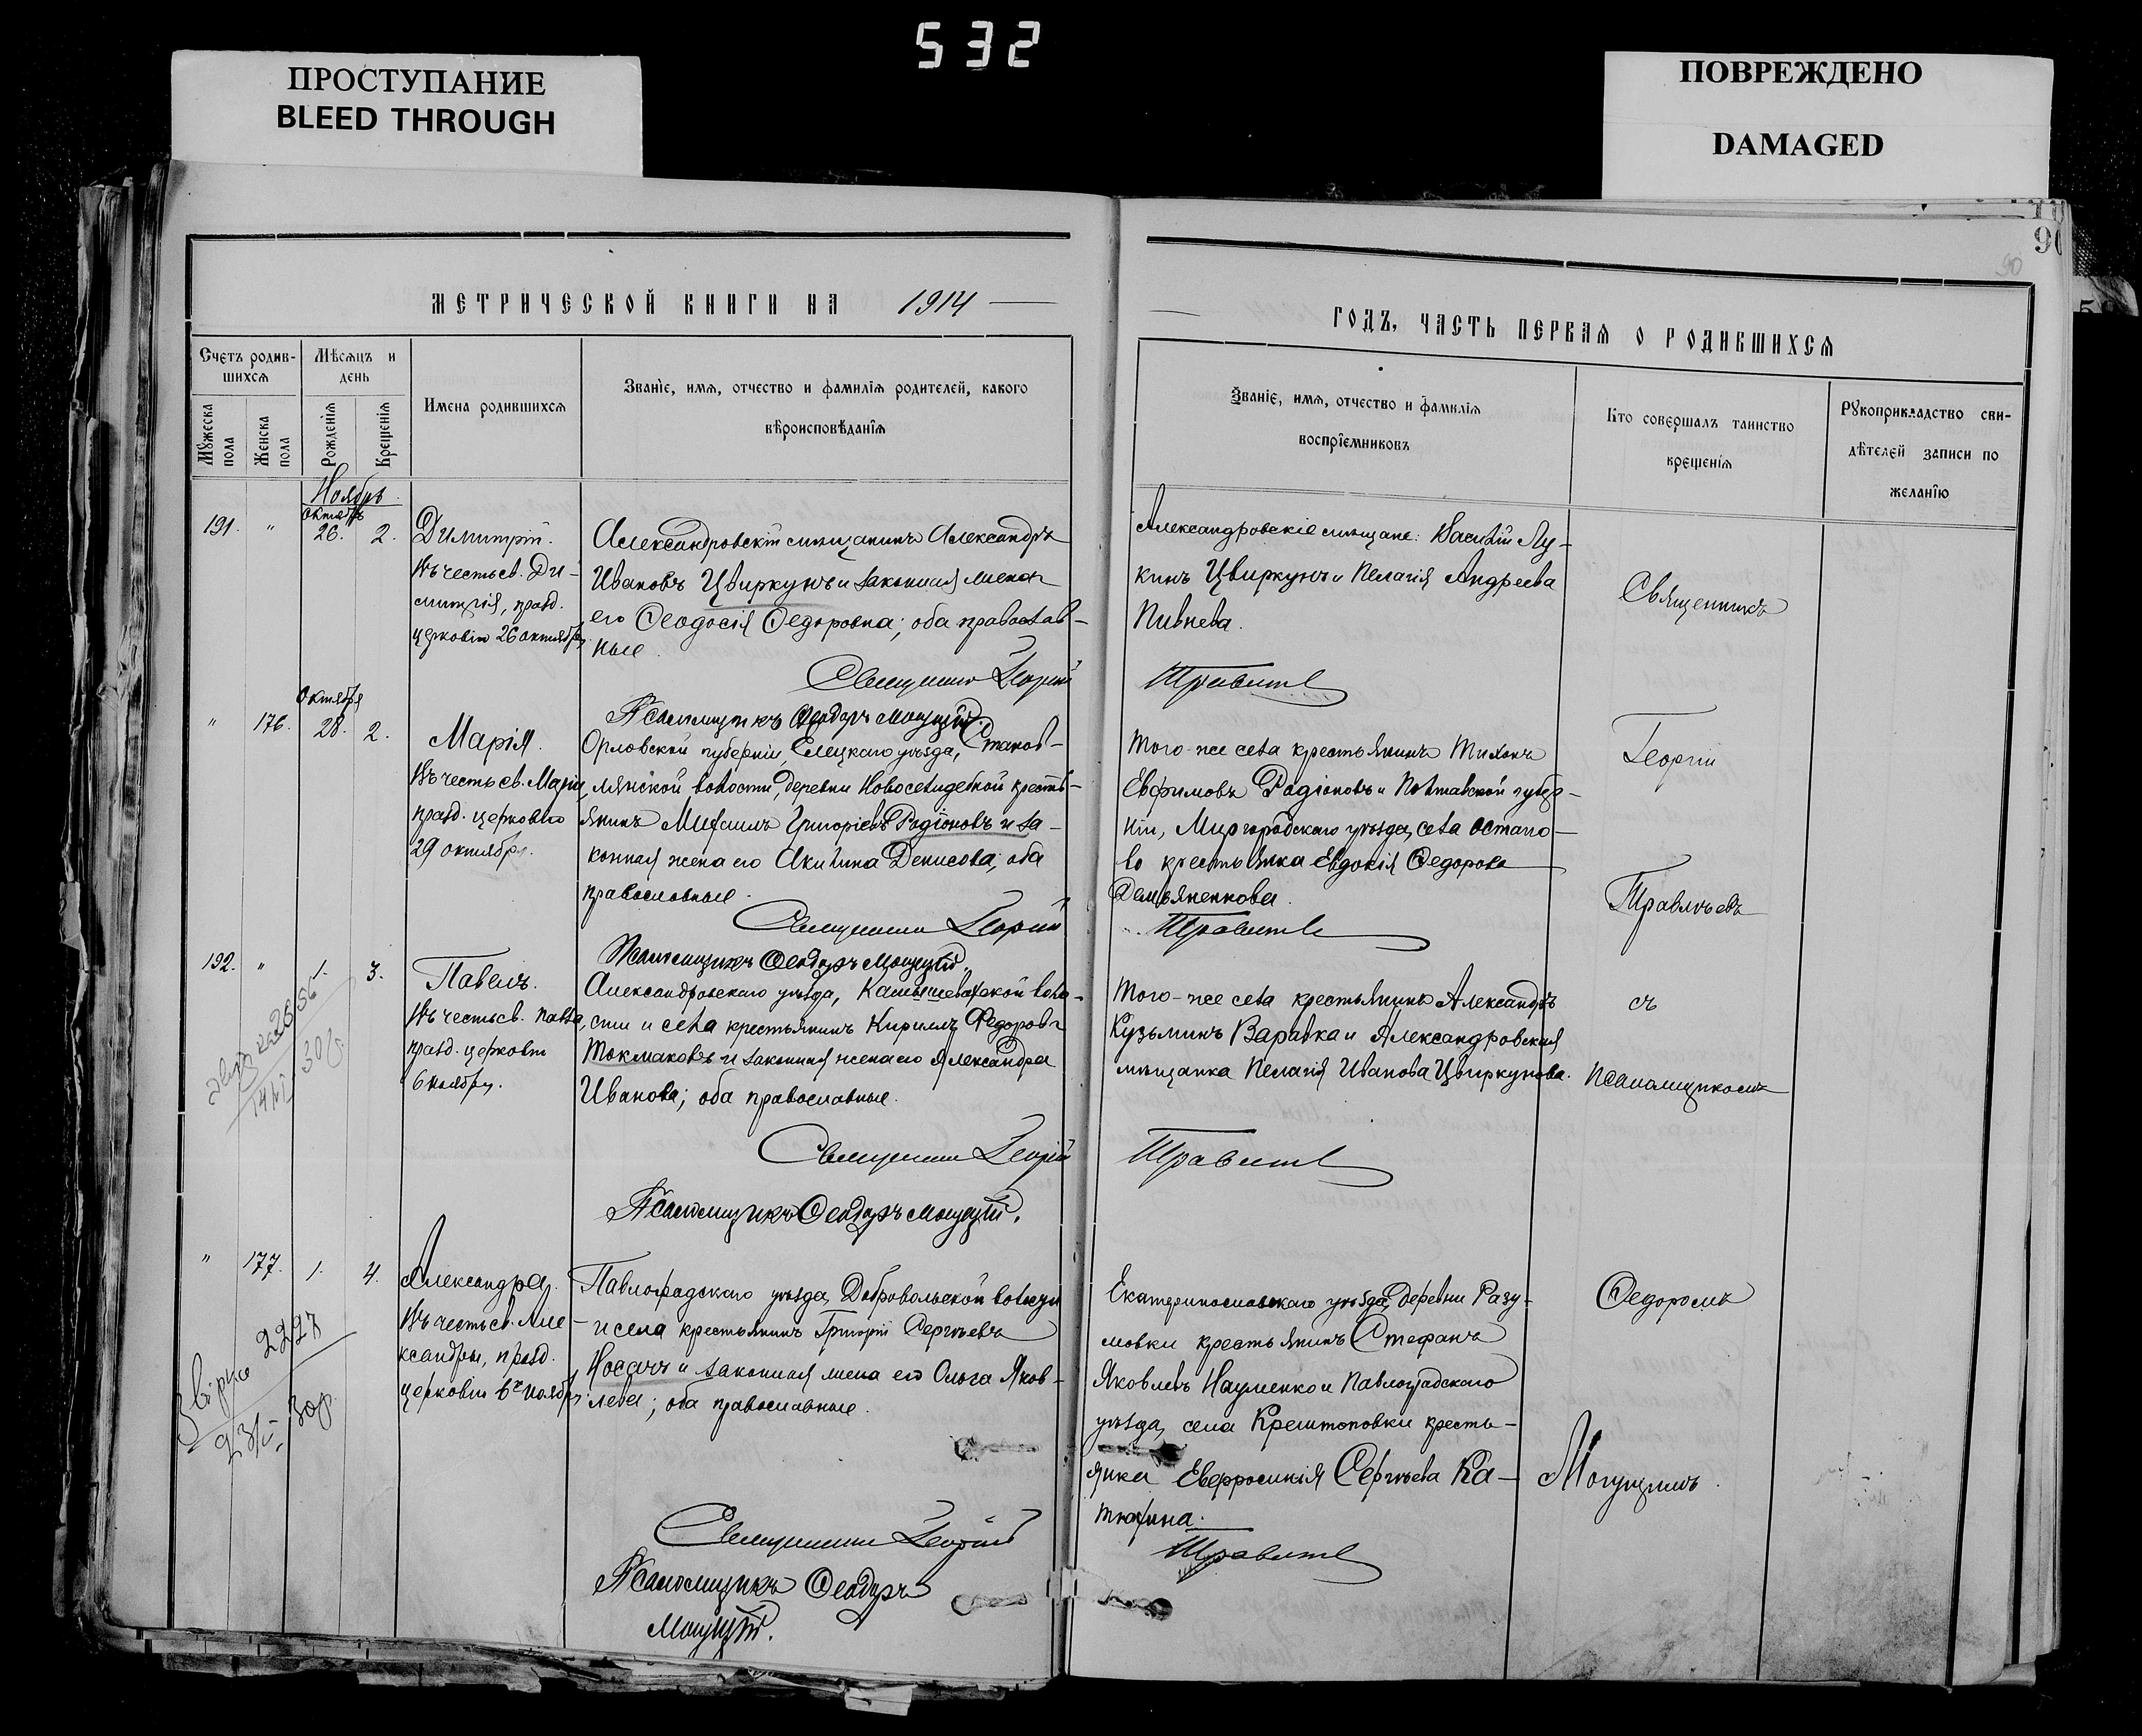 532
ПРОСТУПАНИЕ
BLEED THROUGH
ПОВРЕЖДЕНО
DAMAGED
90
90
МЕТРИЧЕСКОЙ КНИГИ НА 1914
ГОДЪ, ЧАСТЬ ПЕРВАЯ О РОДИВШИХСЯ
Счетъ родив-
шихся
Мѣсяцъ и
день
Мужеска
пола
Женска
пола
Рожденія
Крещенія
Имена родившихся
Званіе, имя, отчество и фамилія родителей, какого
вѣроисповѣданія
Званіе, имя, отчество и фамилія
воспріемниковъ
Кто совершалъ таинство
крещенія
Рукоприкладство сви-
дѣтелей записи по
желанію
Ноябрь
191. "
Октября
26. 2.
Димитрій.
Въ честь св. Ди-
митрія, празд.
церковію 26 октября
Александровскій мѣщанинъ Александръ
Ивановъ Цвиркунъ и законная жена
его Ѳеодосія Ѳедоровна; оба православ-
ные.
Священникъ Георгій
Псаломщикъ Ѳеодоръ
Александровскіе мѣщане: Василій Лу-
кинъ Цвиркунъ и Пелагія Андреева
Пивнева.
Травлѣевъ
" 176.
Октября
28. 2.
Марія.
Въ честь св. Маріи,
празд. церковію
29 октября.
Орловской губерніи, Елецкаго уѣзда, Станов-
лянской волости, деревни Новоселидебной кресть-
янинъ Михаилъ Григорьевъ Родіоновъ и за-
конная жена его Акилина Денисова; оба
православные.
Священникъ Георгій
Псаломщикъ Ѳеодоръ
Того-же села крестьянинъ Тихонъ
Евфимовъ Родіоновъ и Полтавской губер-
ніи, Миргородскаго уѣзда, села Остапо-
во крестьянка Евдокія Ѳедорова
Демьяненкова.
Травлѣевъ
192. " 1. 3.
Павелъ.
Въ честь св. Павла,
празд. церковію
6 ноября.
Александровскаго уѣзда, Камышевахской воло-
сти и села крестьянинъ Кириллъ Федоровъ
Токмаковъ и законная жена его Александра
Иванова; оба православные.
Священникъ Георгій
Псаломщикъ Ѳеодоръ
Того-же села крестьянинъ Александръ
Кузьминъ Варавка и Александровская
мѣщанка Пелагія Иванова Цвиркунова.
Травлѣевъ
" 177. 1. 4.
Александра.
Въ честь св. Але-
ксандры, празд.
церковію 6го ноября
Павлоградскаго уѣзда, Добровольской волости
и села крестьянинъ Григорій Сергѣевъ
Носачъ и законная жена его Ольга Яков-
лева; оба православные.
Священникъ Георгій
Псаломщикъ Ѳеодоръ
Екатеринославскаго уѣзда, деревни Разу-
мовки крестьянинъ Стефанъ
Яковлевъ Науменко и Павлоградскаго
уѣзда, села Крештоповки кресть-
янка Евфросинія Сергѣева Ка-
тюхина.
Травлѣевъ
Священникъ
Георгій
Травлѣевъ
съ
псаломщикомъ
Ѳедоромъ
2228